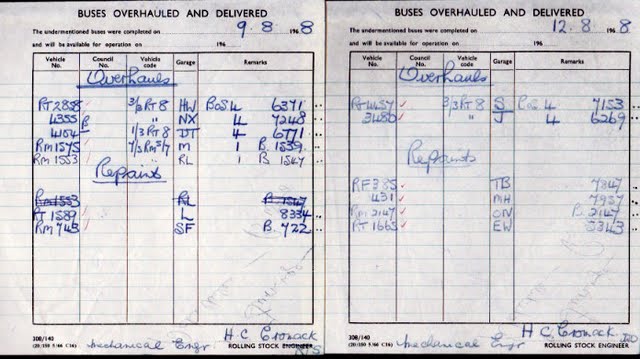 BUSES OVERHAULED AND DELIVERED
The undermentioned buses were completed on 9.8. 1968
and will be available for operation on 196
Vehicle No. Council No. Vehicle code Garage Remarks
Overhauls
RT 2858 3/3 RT 8 HW BOS 4 6371
4355 " NX 4 7248
4104 1/3 RT 8 4 6771
RM 1575 M 1 B. 1539
RM 1553 " RL 1 B 1547
Repaints
RM 1553 RL B 1547
RT 1589 L 8334
RM 743 SF B. 722
H C Cronack
Mechanical Engr. ROLLING STOCK ENGINEER
308/140
BUSES OVERHAULED AND DELIVERED
The undermentioned buses were completed on 12.8. 1968
and will be available for operation on 196
Vehicle No. Council No. Vehicle code Garage Remarks
Overhauls
RT 4457 3/3 RT 8 S BOS 4 7153
3480 " J 4 6269
Repaints
RF 385 TB 7847
431 MH 7957
RM 2147 ON B. 2147
RT 1665 EW 5343
H C Cronack
Mechanical Engr ROLLING STOCK ENGINEER
308/140